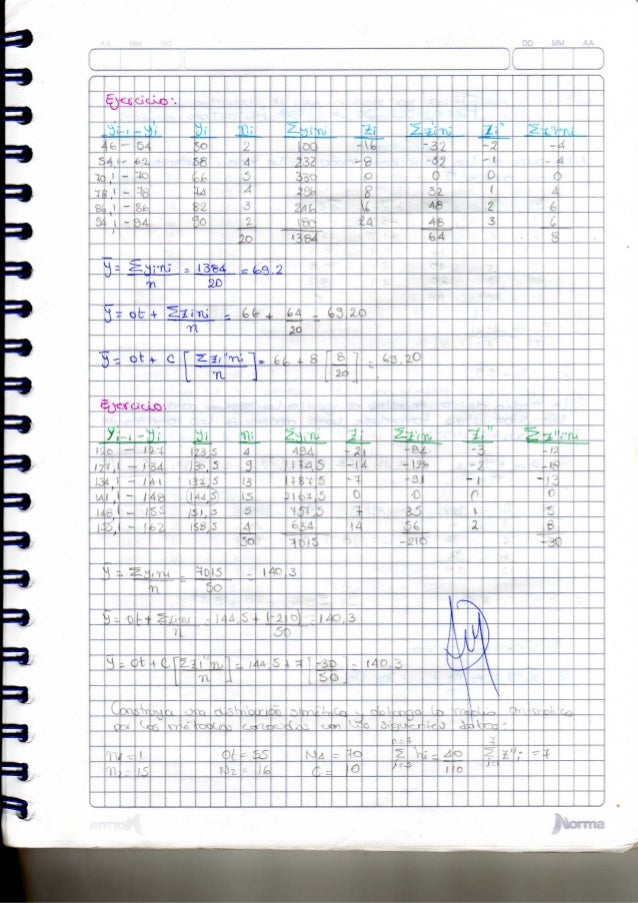 DD MM AA
Ejercicio:
yi-1 - yi yi ni Σyini zi Σzini zi'' Σz''ini
46 - 54 50 2 100 -16 -32 -2 -4
54,1 - 62 58 4 232 -8 -32 -1 -4
70,1 - 70 66 5 330 0 0 0 0
78,1 - 78 74 4 296 8 32 1 4
86,1 - 86 82 3 246 16 48 2 6
94,1 - 94 90 2 180 24 48 3 6
20 1384 64 8
ȳ = Σyini/n = 1384/20 = 69.2
ȳ = ot + Σzini/n = 66 + 64/20 = 69,20
ȳ = ot + c [Σzi''ni/n] = 66 + 8 [8/20] = 69,20
Ejercicio
yi-1 - yi yi ni Σyini zi Σzini zi'' Σz''ini
120 - 127 123,5 4 494 -21 -84 -3 -12
127,1 - 134 130,5 9 1174,5 -14 -126 -2 -18
134,1 - 141 137,5 13 1787,5 -7 -91 -1 -13
141,1 - 148 144,5 15 2167,5 0 0 0 0
148,1 - 155 151,5 5 757,5 7 35 1 5
155,1 - 162 158,5 4 634 14 56 2 8
50 7015 -210 -30
ȳ = Σyini/n = 7015/50 = 140,3
ȳ = ot + Σzini/n = 144,5 + (-210)/50 = 140,3
ȳ = ot + c [Σzi''ni/n] = 144,5 + 7 [-30/50] = 140,3
Construya una distribución simétrica y obtenga la media aritmética
por los métodos conocidos con los siguientes datos:
n1 = 1 Ot = 55 N4 = 70 Σ ni = 40/110 Σ z''i = 7
n2 = 15 N2 = 16 C = 10
Norma